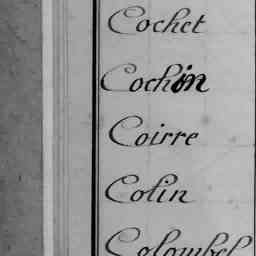 Cochet
Cochin
Coirre
Colin
Colombel